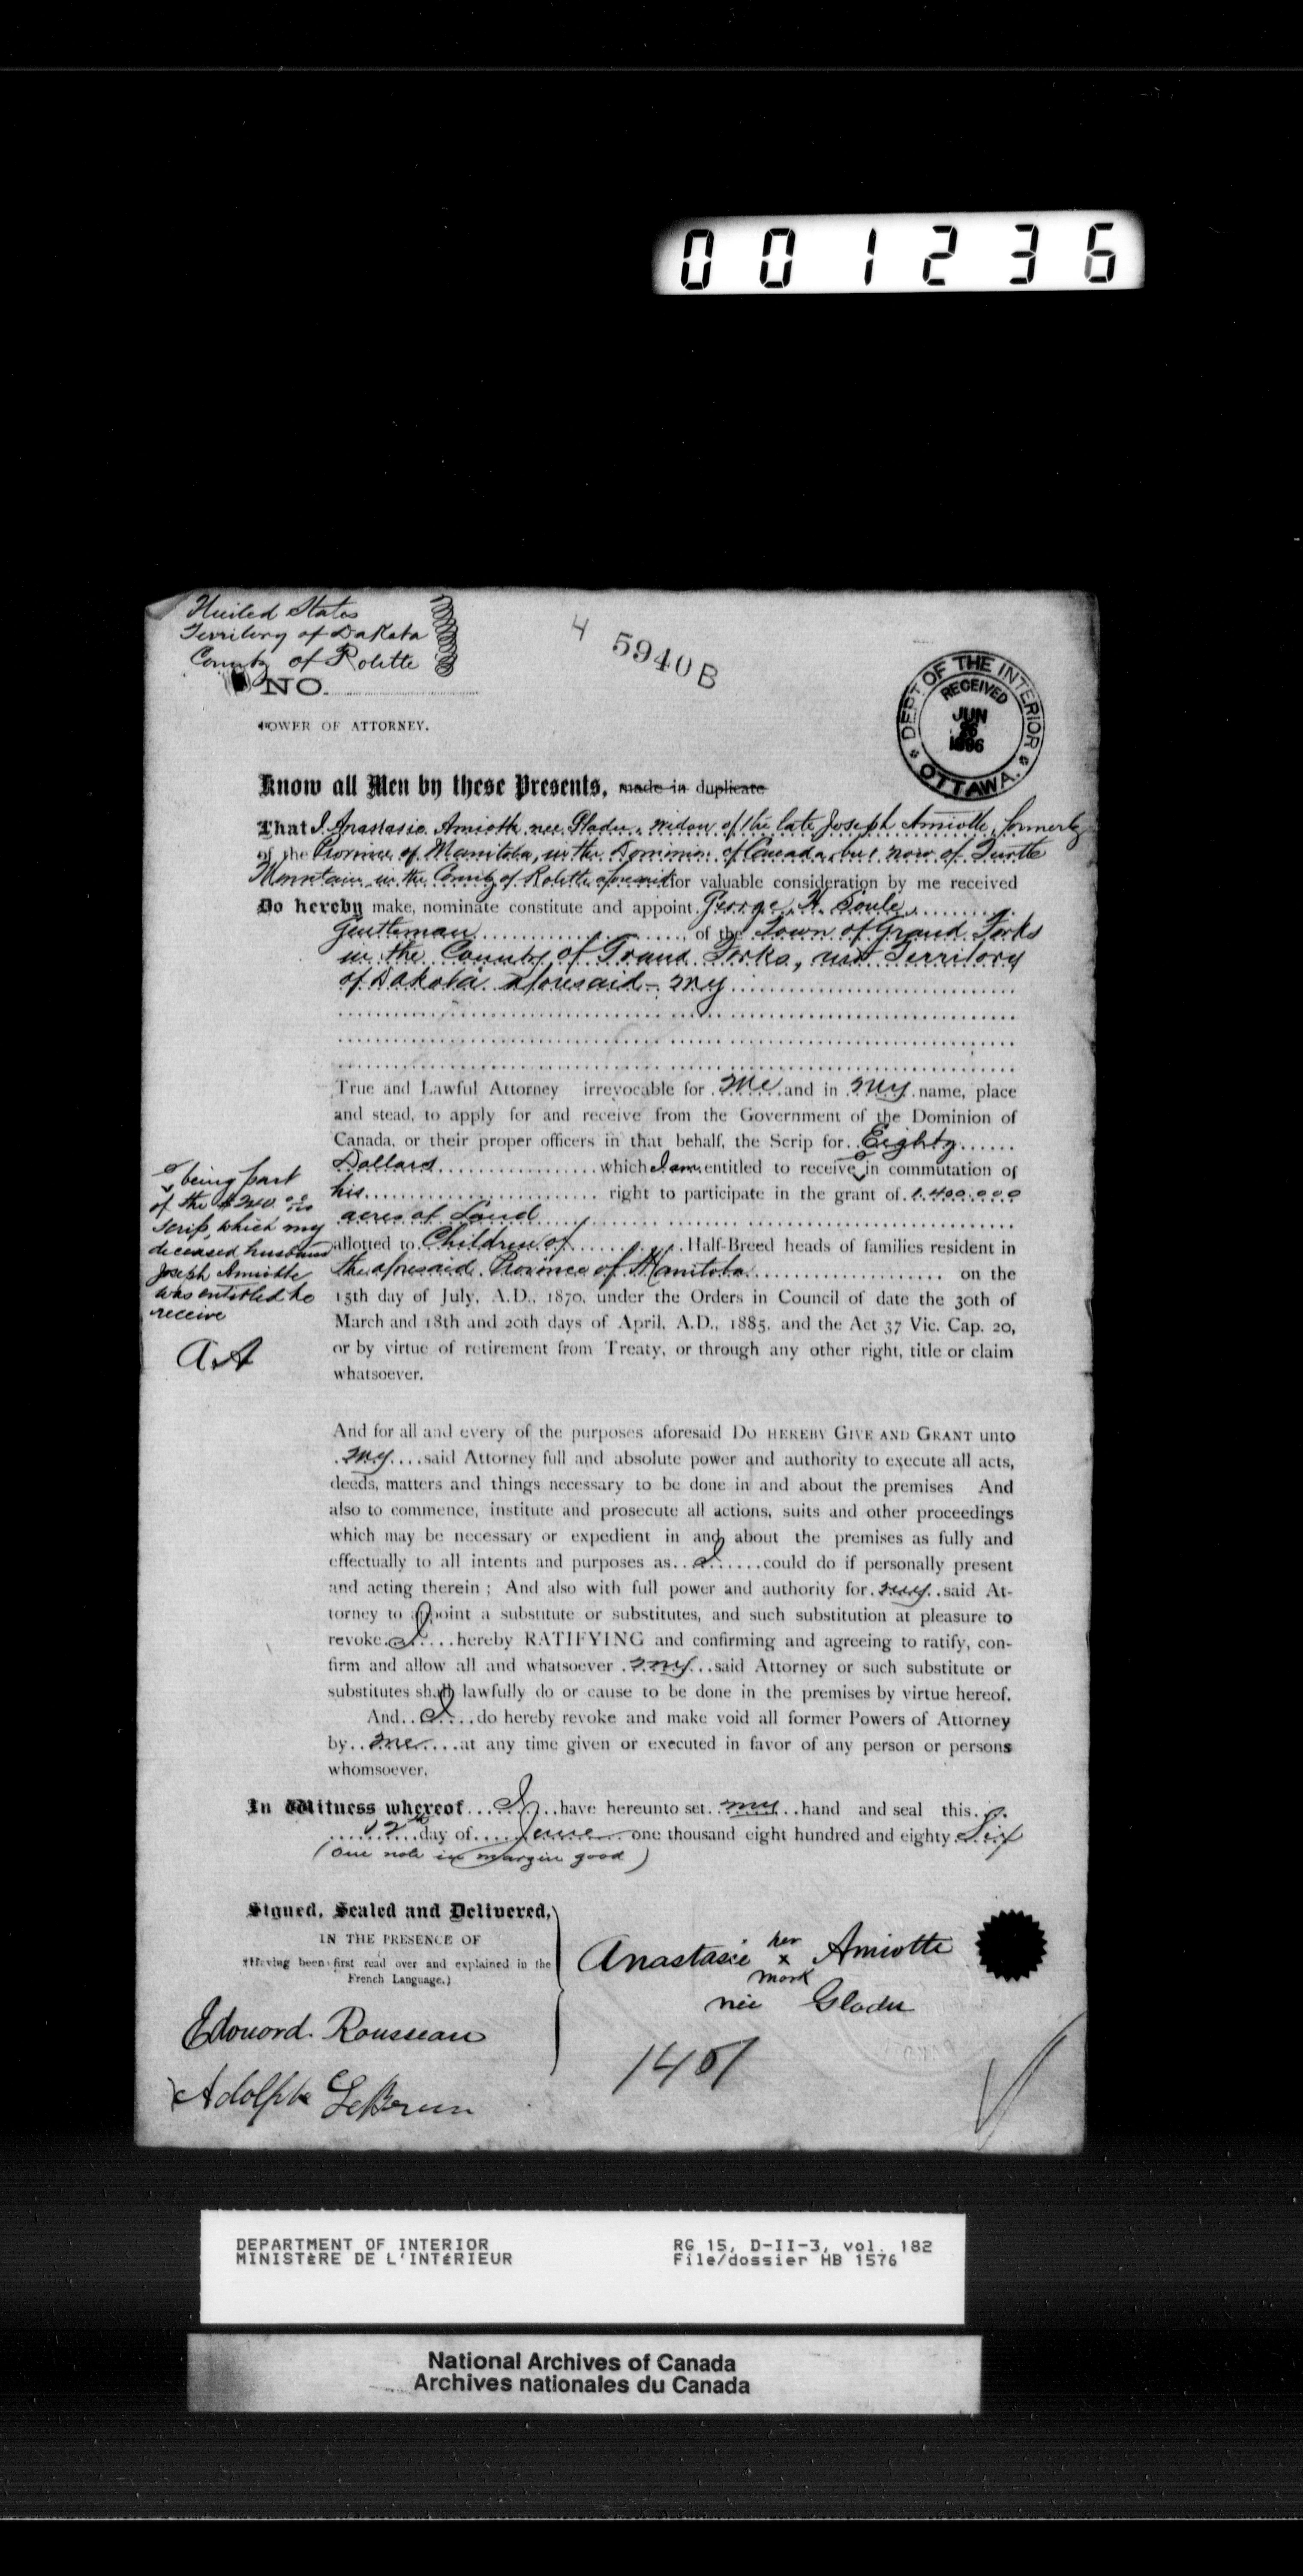 001236
United States
Territory of Dakota
County of Rolette
4 5940B
NO.
DEPT OF THE INTERIOR
RECEIVED
JUN
26
1886
OTTAWA.
POWER OF ATTORNEY.
Know all Men by these Presents, made in duplicate
That I Anastasie Amiotte nee Gladu, widow of the late Joseph Amiotte, formerly
of the Province of Manitoba, in the Dominion of Canada, but now of Turtle
Mountain in the County of Rolette aforesaid for valuable consideration by me received
Do hereby make, nominate constitute and appoint George H. Soule,
Gentleman, of the Town of Grand Forks
in the County of Grand Forks, and Territory
of Dakota aforesaid - my
True and Lawful Attorney irrevocable for me and in my name, place
and stead, to apply for and receive from the Government of the Dominion of
Canada, or their proper officers in that behalf, the Scrip for Eighty
Dollars which I am entitled to receive in commutation of
his right to participate in the grant of 1.400.000
acres of Land
allotted to Children of Half-Breed heads of families resident in
the aforesaid Province of Manitoba on the
15th day of July, A.D., 1870, under the Orders in Council of date the 30th of
March and 18th and 20th days of April, A.D., 1885, and the Act 37 Vic. Cap. 20,
or by virtue of retirement from Treaty, or through any other right, title or claim
whatsoever.
being part
of the $240.00 in
scrip, which my
deceased husband
Joseph Amiotte
was entitled to
receive
A.A
And for all and every of the purposes aforesaid DO HEREBY GIVE AND GRANT unto
my said Attorney full and absolute power and authority to execute all acts,
deeds, matters and things necessary to be done in and about the premises And
also to commence, institute and prosecute all actions, suits and other proceedings
which may be necessary or expedient in and about the premises as fully and
effectually to all intents and purposes as I could do if personally present
and acting therein ; And also with full power and authority for my said At-
torney to appoint a substitute or substitutes, and such substitution at pleasure to
revoke I hereby RATIFYING and confirming and agreeing to ratify, con-
firm and allow all and whatsoever my said Attorney or such substitute or
substitutes shall lawfully do or cause to be done in the premises by virtue hereof.
And I do hereby revoke and make void all former Powers of Attorney
by me at any time given or executed in favor of any person or persons
whomsoever.
In Witness whereof I have hereunto set my hand and seal this
12th day of June one thousand eight hundred and eighty Six
(One note in margin good)
Signed, Sealed and Delivered,
IN THE PRESENCE OF
(Having been first read over and explained in the
French Language.)
Anastasie her x mark Amiotte
née Gladu
Edouard Rousseau
Adolphe LeBrun
1401
DEPARTMENT OF INTERIOR
MINISTÈRE DE L'INTÉRIEUR
RG 15, D-II-3, vol. 182
File/dossier HB 1576
National Archives of Canada
Archives nationales du Canada